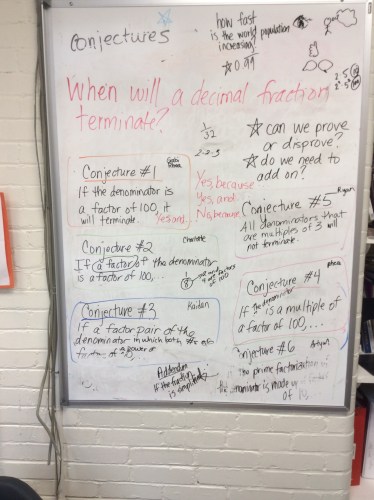 Conjectures
how fast
is the world population
increasing?
☆ 0.99
When will a decimal fraction
terminate?
1/32
2·5
☆ can we prove
or disprove?
☆ do we need to
add on?
Conjecture #1
If the denominator is
a factor of 100, it
will terminate.
Yes and..
Yes, because
Yes, and
No, because
Conjecture #5
All denominators that
are multiples of 3 will
not terminate.
Conjecture #2
Charlotte
If a factor of the denominator
is a factor of 100,...
1/8
Conjecture #4
If the denominator
is a multiple of
a factor of 100,...
Conjecture #3
Kaidan
If a factor pair of the
denominator in which both #s are
a power of
Addendum
If the fraction
is simplified
Conjecture #6
prime factorization
is made
of